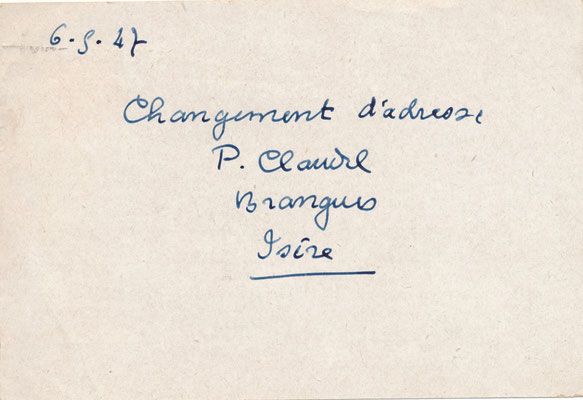 6.5.47
Changement d'adresse
P. Claudel
Brangues
Isère